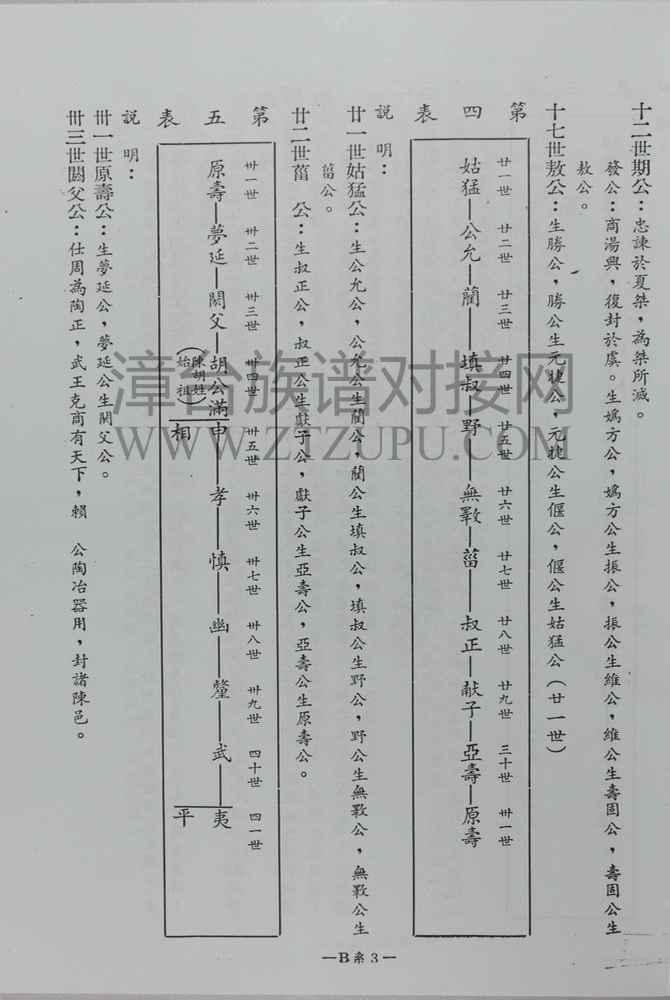 十二世期公：忠諫於夏桀，為桀所滅。
發公：商湯興，復封於虞。生嬀方公，嬀方公生振公，振公生維公，維公生壽固公，壽固公生
敖公。
十七世敖公：生勝公，勝公生元捷公，元捷公生偃公，偃公生姑猛公（廿一世）
第四表
廿一世 廿二世 廿三世 廿四世 廿五世 廿六世 廿七世 廿八世 廿九世 三十世 卅一世
姑猛—公允—藺—填叔—野—無斁—菑—叔正—献子—亞壽—原壽
說明：
廿一世姑猛公：生公允公，公允公生藺公，藺公生填叔公，填叔公生野公，野公生無斁公，無斁公生
菑公。
廿二世菑 公：生叔正公，叔正公生獻子公，獻子公生亞壽公，亞壽公生原壽公。
第五表
卅一世 卅二世 卅三世 卅四世 卅五世 卅六世 卅七世 卅八世 卅九世 四十世 四一世
原壽—夢延—閼父—胡公滿—申—孝—慎—幽—釐—武—夷
（陳胡姓
始祖）
相
平
說明：
卅一世原壽公：生夢延公，夢延公生閼父公。
卅三世閼父公：仕周為陶正，武王克商有天下，賴 公陶冶器用，封諸陳邑。
—B系3—
漳台族谱对接网
WWW.ZTZUPU.COM